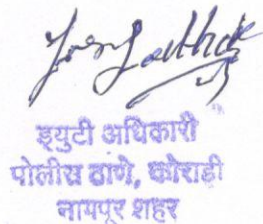 ड्युटी अधिकारी
पोलीस ठाणे, कोराडी
नागपूर शहर